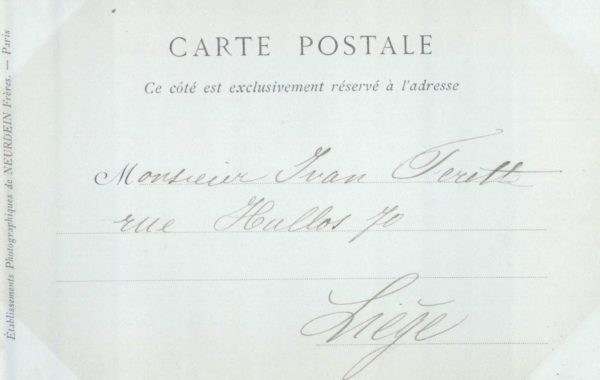 CARTE POSTALE
Ce côté est exclusivement réservé à l'adresse
Monsieur Ivan
rue Hullos 70
Liège
Établissements Photographiques de NEURDEIN Frères. — Paris